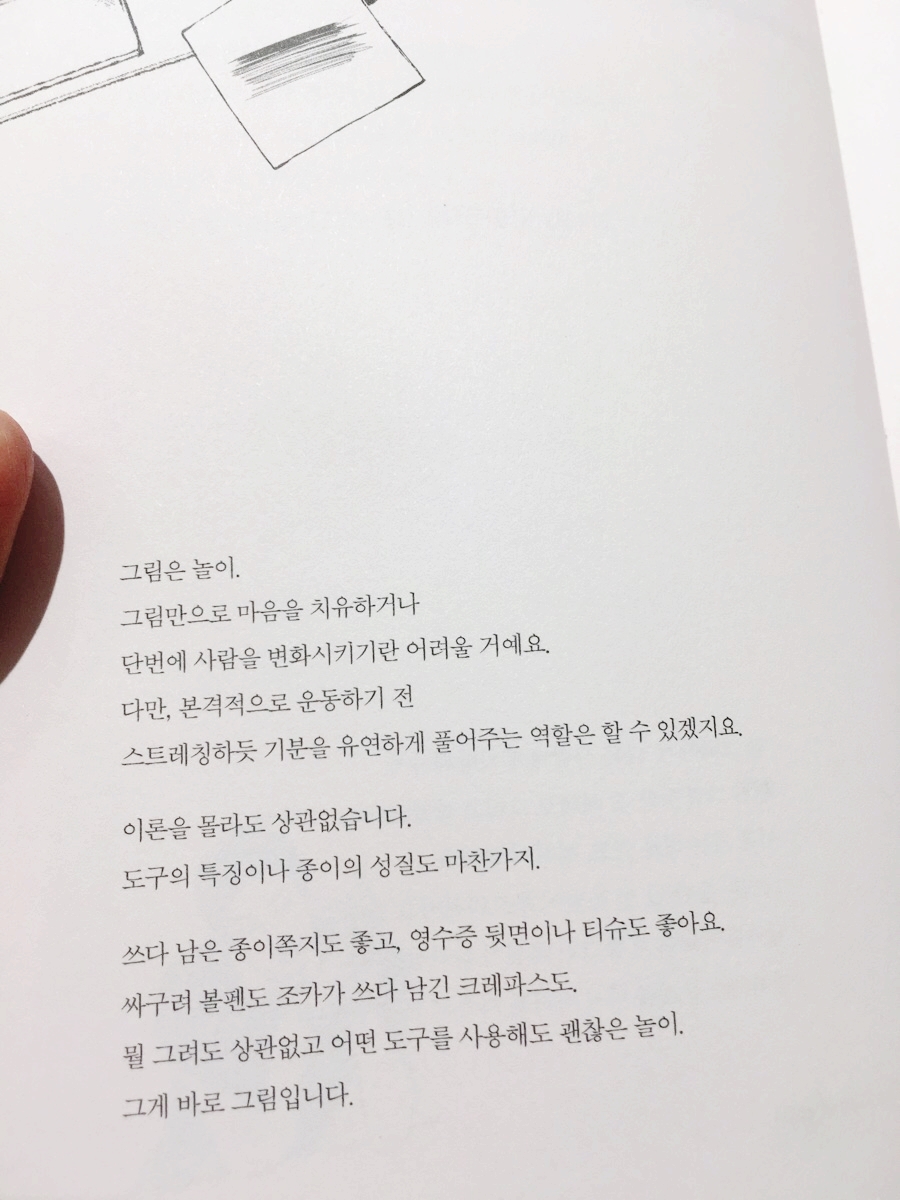 그림은 놀이.
그림만으로 마음을 치유하거나
단번에 사람을 변화시키기란 어려울 거예요.
다만, 본격적으로 운동하기 전
스트레칭하듯 기분을 유연하게 풀어주는 역할은 할 수 있겠지요.
이론을 몰라도 상관없습니다.
도구의 특징이나 종이의 성질도 마찬가지.
쓰다 남은 종이쪽지도 좋고, 영수증 뒷면이나 티슈도 좋아요.
싸구려 볼펜도 조카가 쓰다 남긴 크레파스도.
뭘 그려도 상관없고 어떤 도구를 사용해도 괜찮은 놀이.
그게 바로 그림입니다.